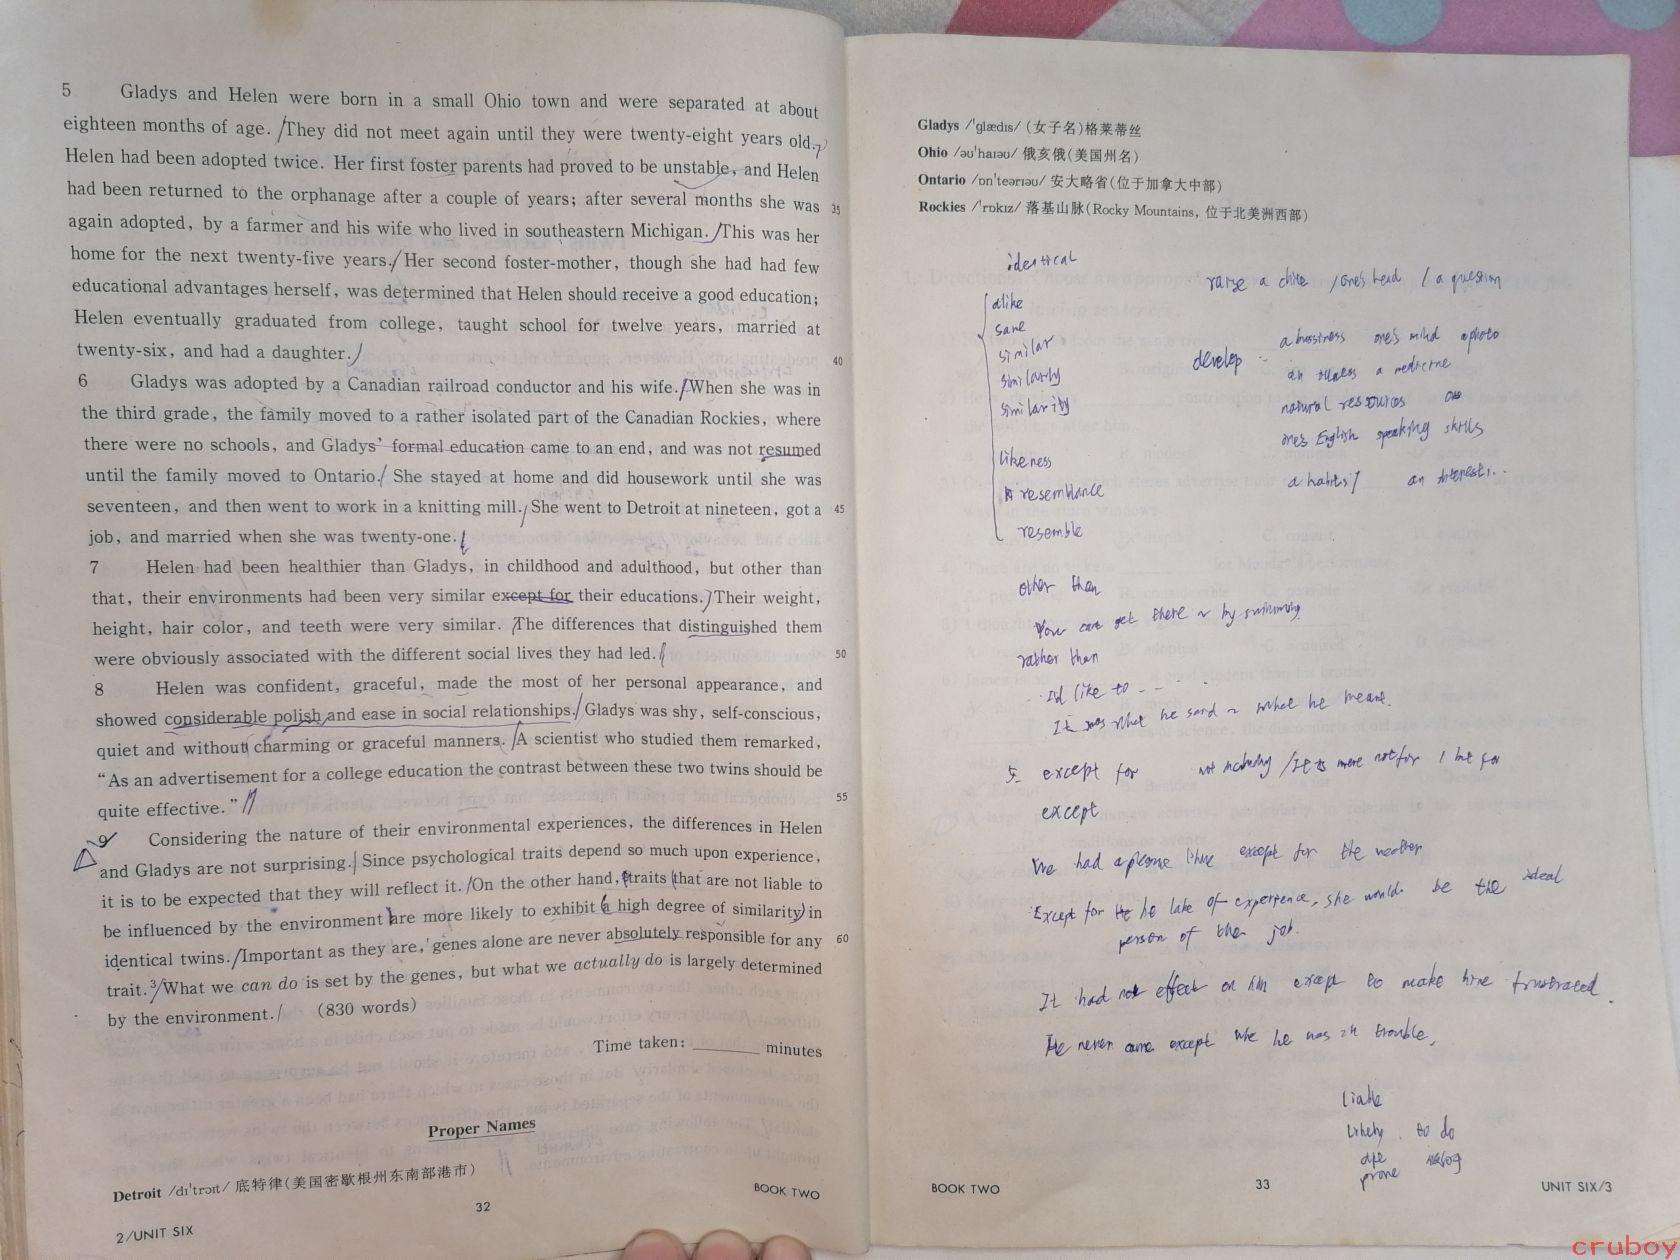 5 Gladys and Helen were born in a small Ohio town and were separated at about
eighteen months of age. They did not meet again until they were twenty-eight years old.
Helen had been adopted twice. Her first foster parents had proved to be unstable, and Helen
had been returned to the orphanage after a couple of years; after several months she was 35
again adopted, by a farmer and his wife who lived in southeastern Michigan. This was her
home for the next twenty-five years. Her second foster-mother, though she had had few
educational advantages herself, was determined that Helen should receive a good education;
Helen eventually graduated from college, taught school for twelve years, married at
twenty-six, and had a daughter. 40
6 Gladys was adopted by a Canadian railroad conductor and his wife. When she was in
the third grade, the family moved to a rather isolated part of the Canadian Rockies, where
there were no schools, and Gladys' formal education came to an end, and was not resumed
until the family moved to Ontario. She stayed at home and did housework until she was
seventeen, and then went to work in a knitting mill. She went to Detroit at nineteen, got a 45
job, and married when she was twenty-one.
7 Helen had been healthier than Gladys, in childhood and adulthood, but other than
that, their environments had been very similar except for their educations. Their weight,
height, hair color, and teeth were very similar. The differences that distinguished them
were obviously associated with the different social lives they had led. 50
8 Helen was confident, graceful, made the most of her personal appearance, and
showed considerable polish and ease in social relationships. Gladys was shy, self-conscious,
quiet and without charming or graceful manners. A scientist who studied them remarked,
"As an advertisement for a college education the contrast between these two twins should be
quite effective." 55
9 Considering the nature of their environmental experiences, the differences in Helen
and Gladys are not surprising. Since psychological traits depend so much upon experience,
it is to be expected that they will reflect it. On the other hand, traits that are not liable to
be influenced by the environment are more likely to exhibit a high degree of similarity in
identical twins. Important as they are, genes alone are never absolutely responsible for any 60
trait.³ What we can do is set by the genes, but what we actually do is largely determined
by the environment. (830 words)
Time taken: ________ minutes
Proper Names
Detroit /dɪˈtrɔɪt/ 底特律(美国密歇根州东南部港市)
32
BOOK TWO
2/UNIT SIX
Gladys /ˈglædɪs/ (女子名)格莱蒂丝
Ohio /əʊˈhaɪəʊ/ 俄亥俄(美国州名)
Ontario /ɒnˈteərɪəʊ/ 安大略省(位于加拿大中部)
Rockies /ˈrɒkɪz/ 落基山脉(Rocky Mountains, 位于北美洲西部)
identical
alike
same
similar
similarly
similarity
likeness
resemblance
resemble
raise a /one's head / a question
develop
a bussiness one's mind a photo
an illness a medicine
natural resources
one's English speaking skills
a habits/ an interest...
other than
You can get there ~ by swimming.
rather than
I'd like to - - -
It was what he said ~ what he meant.
5 except for not including / It is more not for / but for
except
We had a please time except for the weather
Except for he lake of experience, she would be the ideal
person of the job.
It had not effect on him except to make hime frustrated.
He never came except whe he was in trouble.
liable
likely to do
prone
BOOK TWO
33
UNIT SIX/3
cruboy